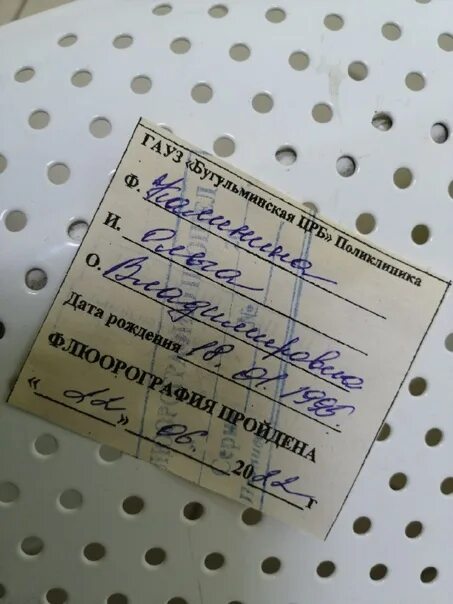 ГАУЗ «Бугульминская ЦРБ» Поликлиника
Ф. Калинина
И. Олеся
О. Владимировна
Дата рождения 18.01.1996
ФЛЮОРОГРАФИЯ ПРОЙДЕНА
« 22 » 06. 2022 г